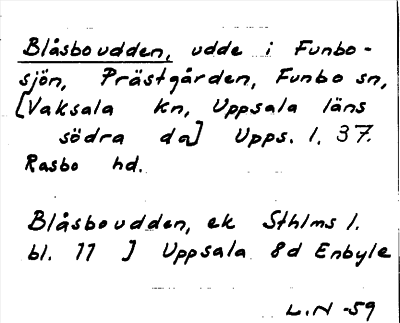 Blåsboudden, udde i Funbo-
sjön, Prästgården, Funbo sn,
[Vaksala kn, Uppsala läns
södra da] Upps. l. 37.
Rasbo hd.
Blåsboudden, ek Sthlms l.
bl. 77 J Uppsala 8d Enbyle
L.N -59